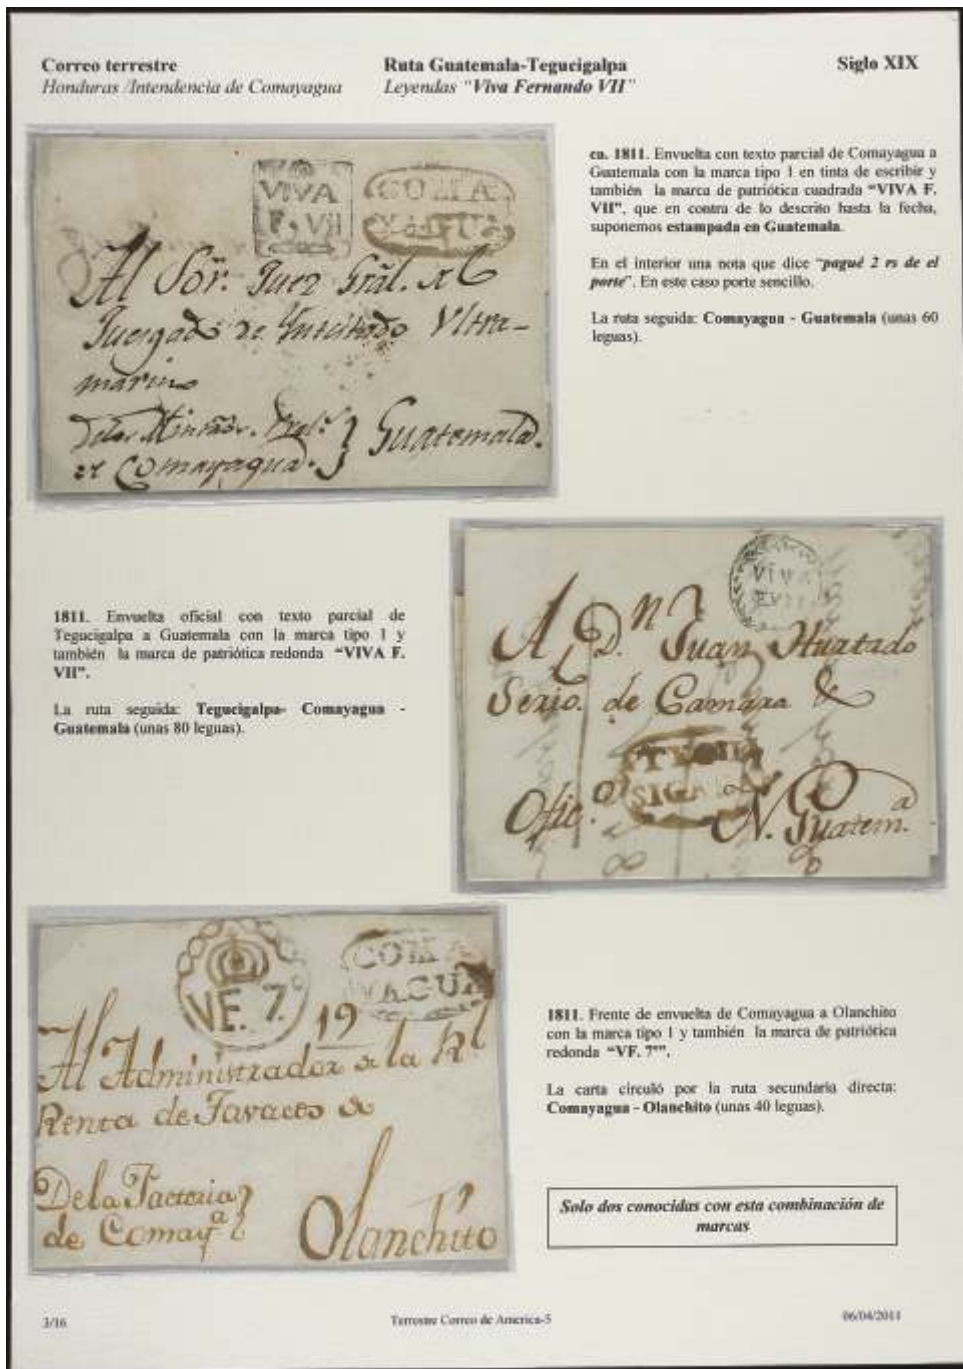 Correo terrestre
Honduras /Intendencia de Comayagua
Ruta Guatemala-Tegucigalpa
Leyendas "Viva Fernando VII"
Siglo XIX
VIVA
F. VII
COMA
YAGUA
Al Sor. Juez Gral. del
Juzgado de Intestado Ultra-
marino
de Comayagua. } Guatemala.
ca. 1811. Envuelta con texto parcial de Comayagua a
Guatemala con la marca tipo 1 en tinta de escribir y
también la marca de patriótica cuadrada "VIVA F.
VII", que en contra de lo descrito hasta la fecha,
suponemos estampada en Guatemala.
En el interior una nota que dice "pagué 2 rs de el
porte". En este caso porte sencillo.
La ruta seguida: Comayagua - Guatemala (unas 60
leguas).
1811. Envuelta oficial con texto parcial de
Tegucigalpa a Guatemala con la marca tipo 1 y
también la marca de patriótica redonda "VIVA F.
VII".
La ruta seguida: Tegucigalpa- Comayagua -
Guatemala (unas 80 leguas).
VIVA
F.VII
A Dn. Juan Hurtado
Serio. de Camara &
TEGU
SIGAL
Ofic.o N. Guatem.a
COMA
YAGUA
VF. 7.o
19
Al Administrador de la Rl
Renta de Tavacos de
De la Factoria }
de Comay.a
Olanchito
1811. Frente de envuelta de Comayagua a Olanchito
con la marca tipo 1 y también la marca de patriótica
redonda "VF. 7º".
La carta circuló por la ruta secundaria directa:
Comayagua - Olanchito (unas 40 leguas).
Solo dos conocidas con esta combinación de
marcas
3/16
Terrestre Correo de America-5
06/04/2011